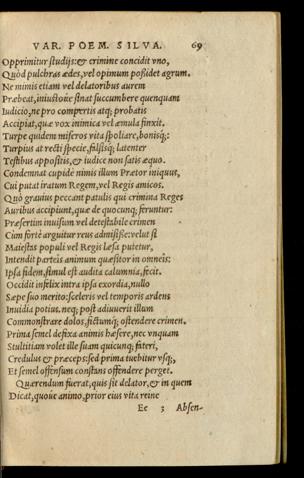 VAR. POEM. SILVA. 69
Opprimitur studijs:& crimine concidit vno,
Quòd pulchras ædes, vel opimum possidet agrum.
Ne mimis etiam vel delatoribus aurem
Præbeat, iniustoúe sinat succumbere quenquam
Iudicio, ne pro compertis atq; probatis
Accipiat, quæ vox inimica vel æmula finxit.
Turpe quidem miseros vita spoliare, bonisq;:
Turpius at recti specie, falsisq; latenter
Testibus appositis, & iudice non satis æquo.
Condemnat cupidè nimis illum Prætor iniquus,
Cui putat iratum Regem, vel Regis amicos.
Quò grauius peccant patulis qui crimina Reges
Auribus accipiunt, quæ de quocunq; feruntur:
Præsertim inuisum vel detestabile crimen
Cùm fortè arguitur reus admisisse: velut si
Maiestas populi vel Regis læsa putetur,
Intendit parteis animum quæsitor in omneis:
Ipsa fidem, simul est audita calumnia, fecit.
Occidit infelix intra ipsa exordia, nullo
Sæpe suo merito: sceleris vel temporis ardens
Inuidia potius. neq; post adiuuerit illum
Commonstrare dolos, fictumq; ostendere crimen.
Prima semel defixa animis hæsere, nec vnquam
Stultitiam volet ille suam quicunq; fateri,
Credulus & præceps: sed prima tuebitur vsq;,
Et semel offensum constans offendere perget.
Quærendum fuerat, quis sit delator, & in quem
Dicat, quoúe animo, prior eius vita reine
Ee 3 Absen-